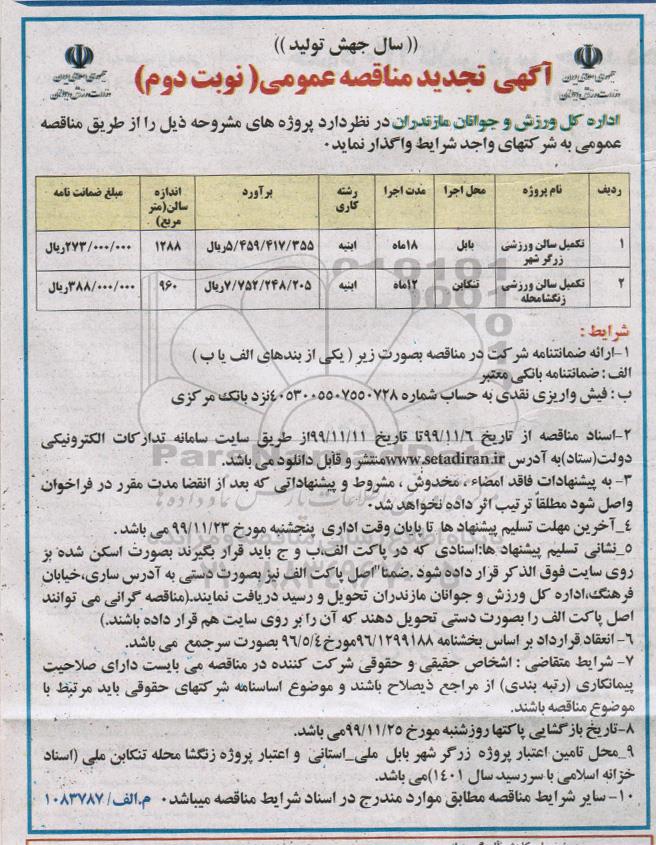 ((سال جهش تولید))
آگهی تجدید مناقصه عمومی( نوبت دوم)
جمهوری اسلامی ایران
وزارت ورزش و جوانان
جمهوری اسلامی ایران
وزارت ورزش و جوانان
اداره کل ورزش و جوانان مازندران در نظردارد پروژه های مشروحه ذیل را از طریق مناقصه
عمومی به شرکتهای واجد شرایط واگذار نماید.
ردیف نام پروژه محل اجرا مدت اجرا رشته کاری برآورد اندازه سالن(متر مربع) مبلغ ضمانت نامه
۱ تکمیل سالن ورزشی زرگر شهر بابل ۱۸ماه ابنیه ۵/۴۵۹/۴۱۷/۳۵۵ریال ۱۲۸۸ ۲۷۳/۰۰۰/۰۰۰ریال
۲ تکمیل سالن ورزشی زنگشامحله تنکابن ۱۲ماه ابنیه ۷/۷۵۲/۲۴۸/۲۰۵ریال ۹۶۰ ۳۸۸/۰۰۰/۰۰۰ریال
شرایط :
۱-ارائه ضمانتنامه شرکت در مناقصه بصورت زیر ( یکی از بندهای الف یا ب )
الف : ضمانتنامه بانکی معتبر
ب : فیش واریزی نقدی به حساب شماره ۴۰۵۳۰۰۵۵۰۷۵۵۰۷۲۸نزد بانک مرکزی
۲-اسناد مناقصه از تاریخ ۹۹/۱۱/۶تا تاریخ ۹۹/۱۱/۱۱از طریق سایت سامانه تدارکات الکترونیکی
دولت(ستاد)به آدرس www.setadiran.irمنتشر و قابل دانلود می باشد.
۳- به پیشنهادات فاقد امضاء ، مخدوش ، مشروط و پیشنهاداتی که بعد از انقضا مدت مقرر در فراخوان
واصل شود مطلقاً ترتیب اثر داده نخواهد شد.
۴_آخرین مهلت تسلیم پیشنهاد ها تا پایان وقت اداری پنجشنبه مورخ ۹۹/۱۱/۲۳ می باشد.
۵_نشانی تسلیم پیشنهاد ها:اسنادی که در پاکت الف،ب و ج باید قرار بگیرند بصورت اسکن شده بر
روی سایت فوق الذکر قرار داده شود .ضمنا"اصل پاکت الف نیز بصورت دستی به آدرس ساری،خیابان
فرهنگ،اداره کل ورزش و جوانان مازندران تحویل و رسید دریافت نمایند.(مناقصه گرانی می توانند
اصل پاکت الف را بصورت دستی تحویل دهند که آن را بر روی سایت هم قرار داده باشند.)
۶- انعقاد قرارداد بر اساس بخشنامه ۹۶/۱۲۹۹۱۸۸مورخ۹۶/۵/۴ بصورت سرجمع می باشد.
۷- شرایط متقاضی : اشخاص حقیقی و حقوقی شرکت کننده در مناقصه می بایست دارای صلاحیت
پیمانکاری (رتبه بندی) از مراجع ذیصلاح باشند و موضوع اساسنامه شرکتهای حقوقی باید مرتبط با
موضوع مناقصه باشند.
۸-تاریخ بازگشایی پاکتها روزشنبه مورخ ۹۹/۱۱/۲۵می باشد.
۹_محل تامین اعتبار پروژه زرگر شهر بابل ملی_استانی و اعتبار پروژه زنگشا محله تنکابن ملی (اسناد
خزانه اسلامی با سررسید سال ۱۴۰۱)می باشد.
۱۰- سایر شرایط مناقصه مطابق موارد مندرج در اسناد شرایط مناقصه میباشد. م.الف/ ۱۰۸۳۷۸۷
ParsNamadData